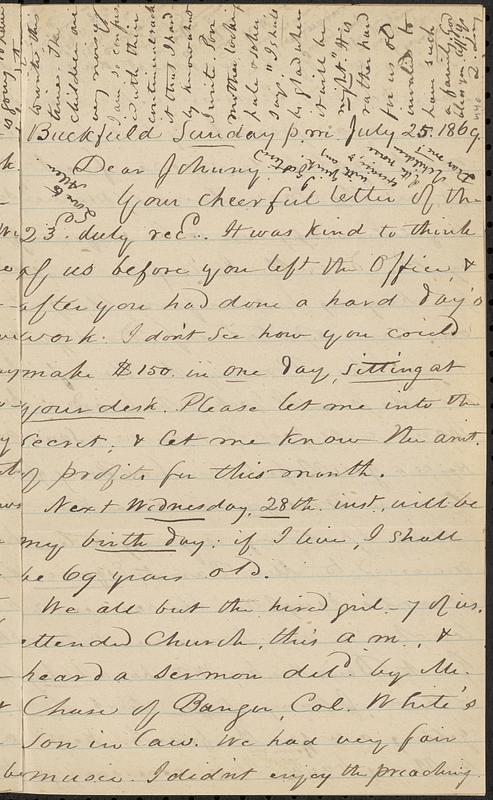 Buckfield Sunday p.m. July 25. 1869.
Dear Johnny.
Your cheerful letter of the
23d. duly recd.. It was kind to think
of us before you left the Office, &
after you had done a hard day's
work. I don't see how you could
make $150. in one day, sitting at
your desk. Please let me into the
secret, & let me know the amt.
of profits for this month.
Next Wednesday, 28th. inst. will be
my birth day: if I live, I shall
be 69 years old.
We all but the hired girl - 7 of us,
attended Church, this a.m., &
heard a sermon deld. by Mr.
Chase of Bangor, Col. White's
son in law. We had very fair
music. I didn't enjoy the preaching
to write this
time. The
children are
very noisy &
I am so confus
ed with their
continual rack
et that I hard
ly know what
I write. Your
mother looking
pale & sober
says "I shall
be glad when
it will be
night." It is
rather hard
for us old
invalids to
have such
a family